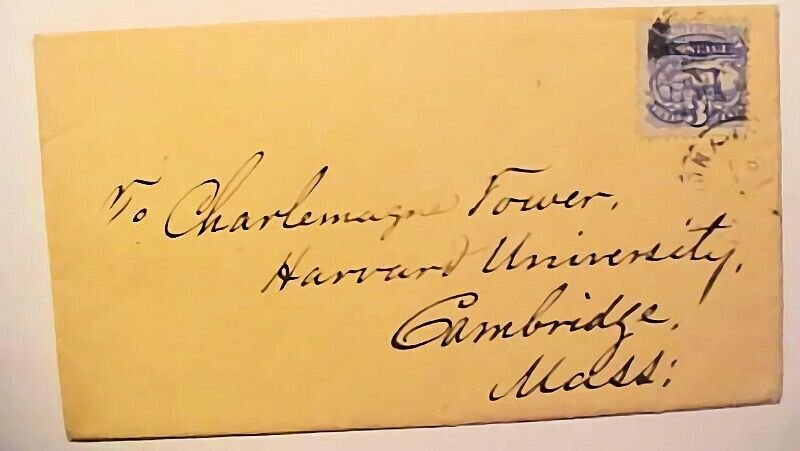 To Charlemagne Tower,
Harvard University,
Cambridge,
Mass: